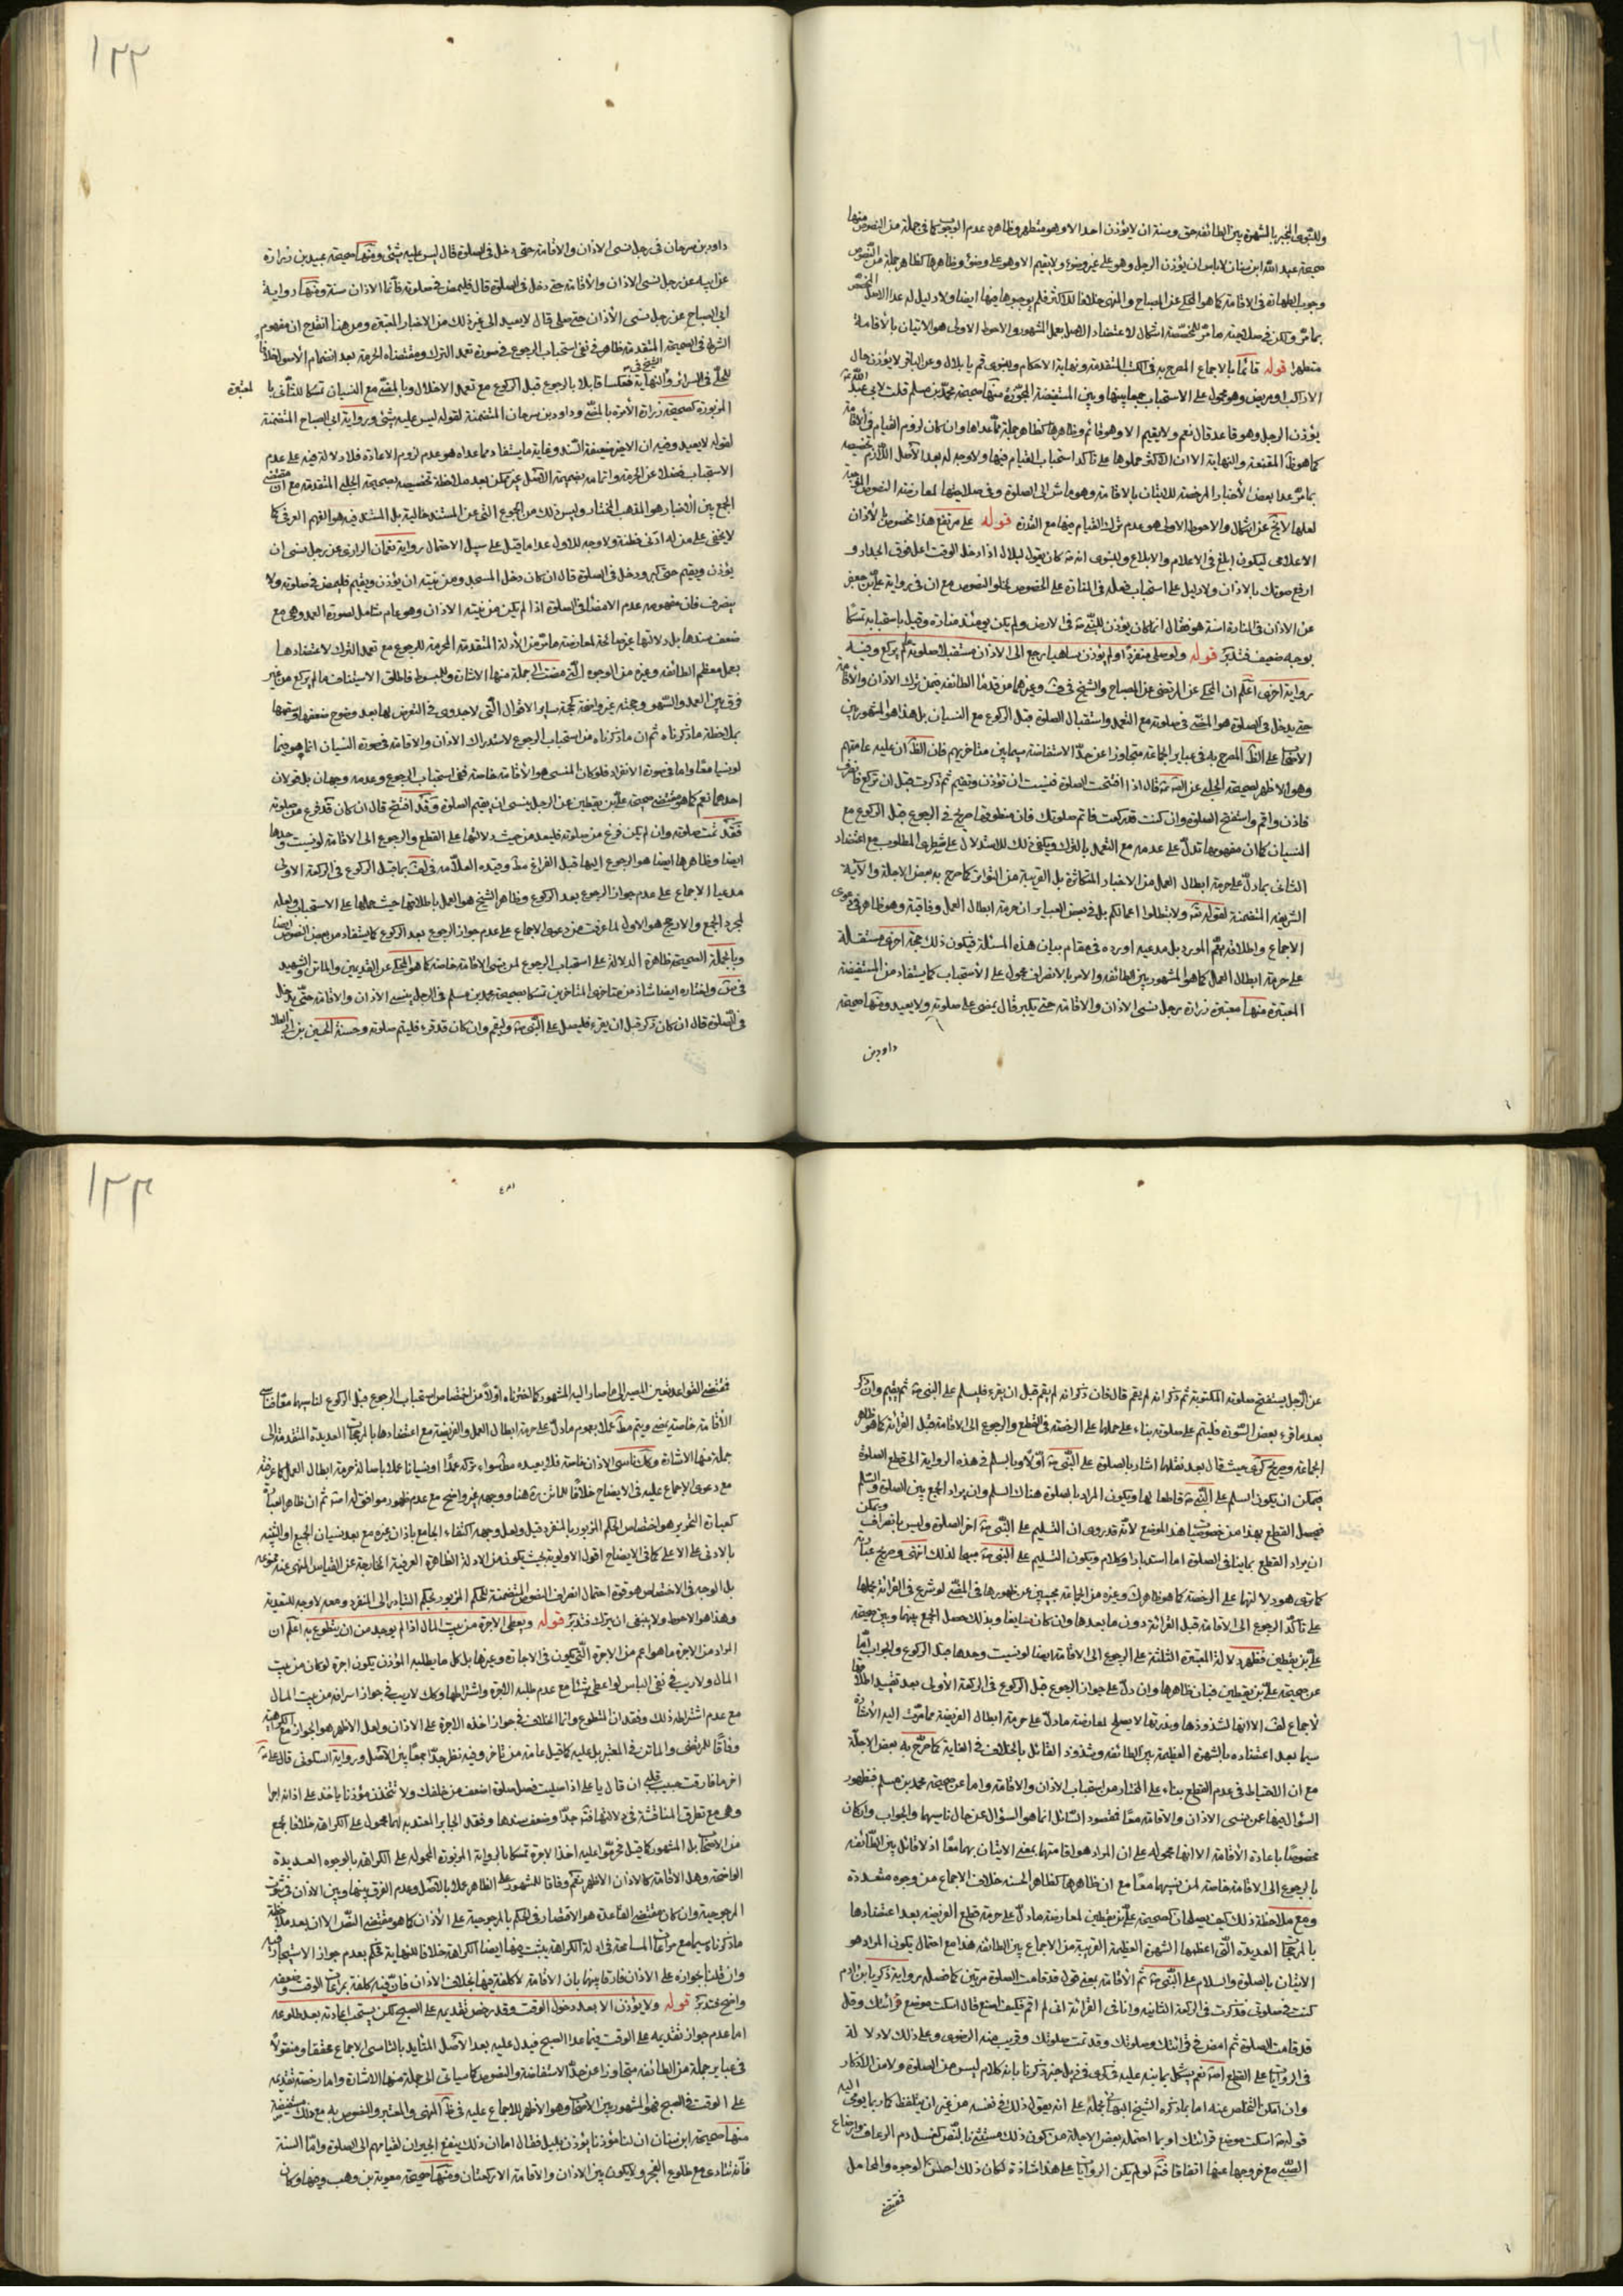 وللنبوي المنجبر بالشهرة بين الطائفة حق وسنة ان لا يؤذن احد الا وهو متطهر وظاهره عدم الوجوب كما في جملة من النصوص منها
صحيحة عبد الله ابن سنان لا باس ان يؤذن الرجل وهو على غير وضوء ولا يقيم الا وهو على وضوء وظاهرها كظاهر جملة من النصوص
وجوب الطهارة في الاقامة كما هو المحكي عن المصباح والمنتهى خلافا للاكثر فلم يوجبوها فيها ايضا ولا دليل له عدا الاصل المخصص
بما مر ولكن في صلاحية ما مر للمخصصية اشكال لاعتضاد الاصل بعمل المشهور والاحوط الاولى هو الاتيان بالاقامة
متطهرا قوله قائما بالاجماع المصرح به في الكتب المتقدمة ونهاية الاحكام وللنبوي قم يا بلال وعن الباقر لا يؤذن جالسا
الا راكب او مريض وهو محمول على الاستحباب جمعا بينها وبين المستفيضة المجوزة منها صحيحة محمد بن مسلم قلت لابي عبد الله
يؤذن الرجل وهو قاعد قال نعم ولا يقيم الا وهو قائم وظاهرها كظاهر جملة مما عداها وان كان لزوم القيام في الاقامة
كما هو ظ المقنعة والنهاية الا ان الاكثر حملوها على تاكد استحباب القيام فيها ولا وجه له بعد الاصل اللازم تخصيصه
بما مر عدا بعض الاخبار المرخصة للاتيان بالاقامة وهو ماش الى الصلوة وفي صلاحيتها لمعارضة النصوص الموجبة
لعلها لا يخ عن اشكال والاحوط الاولى هو عدم ترك القيام فيها مع القدرة قوله على مرتفع هذا مخصوص بالاذان
الاعلامي ليكون ابلغ في الاعلام والابلاغ وللنبوي انه كان يقول لبلال اذا دخل الوقت اعل فوق الجدار و
ارفع صوتك بالاذان ولا دليل على استحباب فعله في المنارة على الخصوص لخلو النصوص مع ان في رواية علي بن جعفر
عن الاذان في المنارة اسنة هو فقال انما كان يؤذن للنبي في الارض ولم يكن يومئذ منارة وقيل باستحبابه تمسكا
بوجه ضعيف فتدبر قوله ولو صلى منفردا ولم يؤذن ساهيا رجع الى الاذان مستقبلا صلوته ما لم يركع وفيه
رواية اخرى اعلم ان المحكي عن المرتضى عن المصباح والشيخ في ف وغيرهما من قدماء الطائفة فيمن ترك الاذان والاقامة
حتى يدخل في الصلوة هو المضي في صلوته مع التعمد واستقبال الصلوة قبل الركوع مع النسيان بل هذا هو المشهور بين
الاصحاب على الظ المصرح به في عباير الجماعة متجاوزا عن حد الاستفاضة سيما بين متاخريهم فان الظ ان عليه عامتهم
وهو الاظهر لصحيحة الحلبي عن الصادق قال اذا افتتحت الصلوة فنسيت ان تؤذن وتقيم ثم ذكرت قبل ان تركع فانصرف
فاذن واقم واستفتح الصلوة وان كنت قد ركعت فاتم صلوتك فان منطوقها صريح في الرجوع قبل الركوع مع
النسيان كما ان مفهومها تدل على عدمه مع التعمد بالترك ويكفي ذلك للاستدلال على شطري المطلوب مع اعتضاد
الثاني بما دل على حرمة ابطال العمل من الاخبار المتكاثرة بل القريبة من التواتر كما صرح به بعض الاجلة والاية
الشريفة المتضمنة لقوله تع ولا تبطلوا اعمالكم بل في بعض العباير ان حرمة ابطال العمل وفاقية وهو ظاهر في دعوى
الاجماع واطلاقه يعم المورد بل مدعيه اورده في مقام بيان هذه المسئلة فيكون ذلك حجة اخرى مستقلة
على حرمة ابطال العمل كما هو المشهور بين الطائفة والامر بالانصراف محمول على الاستحباب كما يستفاد من المستفيضة
المعتبرة منها معتبرة زرارة رجل نسى الاذان والاقامة حتى يكبر قال يمضي على صلوته ولا يعيد ومنها صحيحة
داود بن
١٢٢
داود بن سرحان في رجل نسى الاذان والاقامة حتى دخل في الصلوة قال ليس عليه شئ ومنها صحيحة عبيد بن زرارة
عن ابيه عن رجل نسى الاذان والاقامة حتى دخل في الصلوة قال فليمض في صلوته فانما الاذان سنة ومنها رواية
ابي الصباح عن رجل نسى الاذان حتى صلى قال لا يعيد الى غير ذلك من الاخبار المعتبرة ومن هذا انقدح ان مفهوم
الشرط في الصحيحة المتقدمة ظاهر في نفي استحباب الرجوع في صورة تعمد الترك ومقتضاه الحرمة بعد انضمام الاصول خلافا
للحلي في السرائر والنهاية فعكسا قابلا بالرجوع قبل الركوع مع تعمد الاخلال وبالمضي مع النسيان تمسكا للثاني با لمعتبرة
المزبورة كصحيحة زرارة الامرة بالمضي وداود بن سرحان المتضمنة لقوله ليس عليه شئ ورواية ابي الصباح المتضمنة
لقوله لا يعيد وفيه ان الاخير ضعيفة السند وغاية ما يستفاد مما عداه هو عدم لزوم الاعادة فلا دلالة فيه على عدم
الاستحباب فضلا عن الحرمة واتمامه بضميمة الاصل غير ممكن بعد ملاحظة تخصيصه بصحيحة الحلبي المتقدمة مع ان مقتضى
الجمع بين الاخبار هو المذهب المختار وليس ذلك من الجموع التي عن المستند خالية بل المستند فيه هو الفهم العرفي كما
لا يخفى على من له ادنى فطنة ولا وجه للاول عدا ما قيل على سبيل الاحتمال رواية نعمان الرازي عن رجل نسى ان
يؤذن ويقيم حتى كبر ودخل في الصلوة قال ان كان دخل المسجد ومن نيته ان يؤذن ويقيم فليمض في صلوته ولا
ينصرف فان مفهومه عدم الامضاء في الصلوة اذا لم يكن من نيته الاذان وهو عام شامل لصورة العمد وهي مع
ضعف سندها بل دلالتها غير صالحة لمعارضة ما مر من الادلة المتقدمة المحرمة للرجوع مع تعمد الترك لاعتضادها
بعمل معظم الطائفة وغيره من الوجوه التي مضت الى جملة منها الاشارة وللمبسوط فاطلق الاستيناف ما لم يركع من غير
فرق بين العمد والسهو وحجته غير واضحة كحجة ساير الاقوال التي لا جدوى في التعرض لها بعد وضوح ضعفها سيما
بملاحظة ما ذكرناه ثم ان ما ذكرناه من استحباب الرجوع لاستدراك الاذان والاقامة في صورة النسيان انما هو فيما
لو نسيا معا واما في صورة الانفراد فلو كان المنسى هو الاقامة خاصة ففي استحباب الرجوع وعدمه وجهان بل قولان
احدهما نعم كما هو مقتضى صحيحة علي بن يقطين عن الرجل ينسى ان يقيم الصلوة وقد افتتح قال ان كان قد فرغ من صلوته
فقد تمت صلوته وان لم يكن فرغ من صلوته فليعد من حيث دلالتها على القطع والرجوع الى الاقامة لو نسيت وحدها
ايضا وظاهرها ايضا هو الرجوع اليها قبل الفراغ مط وقيده العلامة في لف بما قبل الركوع في الركعة الاولى
مدعيا الاجماع على عدم جواز الرجوع بعد الركوع وظاهر الشيخ هو العمل باطلاقها حيث حملها على الاستحباب ولعله
لمجرد الجمع والارجح هو الاول لما عرفت من دعوى الاجماع على عدم جواز الرجوع بعد الركوع كما يستفاد من بعض النصوص ايضا
وبالجملة الصحيحة ظاهرة الدلالة على استحباب الرجوع لمن نسى الاقامة خاصة كما هو المحكي عن القديمين والماتن والشهيد
في س واختاره ايضا شاذ من متاخري المتاخرين تمسكا بصحيحة محمد بن مسلم في الرجل ينسى الاذان والاقامة حتى يدخل
في الصلوة قال ان كان ذكر قبل ان يقرء فليصل على النبي وليقم وان كان قد قرء فليتم صلوته وحسنة الحسين بن ابي العلا
عن الرجل يستفتح صلوته المكتوبة ثم ذكر انه لم يقم قال فان ذكر انه لم يقم قبل ان يقرء فليسلم على النبي ثم يقيم وان ذكر
بعد ما قرء بعض السورة فليتم على صلوته بناء على حملها على الرخصة في القطع والرجوع الى الاقامة قبل القرائة كما هو ظاهر
الجماعة وصريح كرى حيث قال بعد نقلها اشار بالصلوة على النبي اولا وبالسلم في هذه الرواية الى قطع الصلوة
فيمكن ان يكون السلم على النبي قاطعا لها ويكون المراد بالصلوة هناك السلم وان يراد الجمع بين الصلوة والسلم
فيحصل القطع بهذا من خصوصيات هذا الموضع لانه قد روى ان التسليم على النبي اخر الصلوة وليس بانصراف ويمكن
ان يراد القطع بما ينافي الصلوة اما استدبارا وكلام ويكون التسليم على النبي مبيحا لذلك انتهى وصريح عبارته
كما ترى هو دلالتها على الرخصة كما هو ظاهرك وغيره من الجماعة مجيبين عن ظهورها في المضي لو شرع في القرائة بحملها
على تاكد الرجوع الى الاقامة قبل القرائة دون ما بعدها وان كان سايغا وبذلك حصل الجمع بينها وبين صحيحة
علي بن يقطين فظهر دلالة المعتبرة الثلثة على الرجوع الى الاقامة ايضا لو نسيت وحدها قبل الركوع والجواب اما
عن صحيحة علي بن يقطين فبان ظاهرها وان دل على جواز الرجوع قبل الركوع في الركعة الاولى بعد تقييد اطلاقها
لاجماع لف الا انها لشذوذها وندرتها لا يصلح لمعارضة ما دل على حرمة ابطال الفريضة مما مرت اليه الاشارة
سيما بعد اعتضاده بالشهرة العظيمة بين الطائفة وشذوذ القائل بالخلاف في الغاية كما صرح به بعض الاجلة
مع ان الاحتياط في عدم القطع بناء على المختار من استحباب الاذان والاقامة واما عن صحيحة محمد بن مسلم فبظهور
السؤال فيها عن من نسى الاذان والاقامة معا فمقصود السائل انما هو السؤال عن حال ناسيهما والجواب وان كان
مخصوصا باعادة الاقامة الا انها محمولة على ان المراد هو اقامتها بمعنى الاتيان بهما معا اذ لا قائل بين الطائفة
بالرجوع الى الاقامة خاصة لمن نسيهما معا مع ان ظاهرها كظاهر الحسنة خلاف الاجماع من وجوه متعددة
ومع ملاحظة ذلك كيف يصلحان كصحيحة علي بن يقطين لمعارضة ما دل على حرمة قطع الفريضة بعد اعتضادها
بالمرجحات العديدة التي اعظمها الشهرة العظيمة القريبة من الاجماع بين الطائفة هذا مع احتمال يكون المراد هو
الاتيان بالصلوة والسلام على النبي ثم الاقامة بمعنى قول قد قامت الصلوة مرتين كما فصله رواية زكريا بن ادم
كنت في صلوتي فذكرت في الركعة الثانية وانا في القرائة اني لم اقم فكيف اصنع قال اسكت موضع قرائتك وقل
قد قامت الصلوة ثم امض في قرائتك وصلوتك وقد تمت صلوتك وقريب منه الرضوي وعلى ذلك لا دلالة
في الروايات على القطع اصلا نعم يشكل بما نبه عليه في كرى في ذيل خبر زكريا بانه كلام ليس من الصلوة ولا من الاذكار
وان امكن التخلص عنه اما بما ذكره الشيخ البهائي بحمله على انه يقول ذلك في نفسه من غير ان يتلفظ كما ربما يومى اليه
قوله اسكت موضع قرائتك او بما احتمله بعض الاجلة من كون ذلك مستثنى بالنص كغسل دم الرعاف وارضاع
الصبي مع خروجها عنها اتفاقا فتم لو لم يكن الروايات على هذا شاذة لكان ذلك احسن الوجوه والمحامل
فمقتضى
١٢٣
فمقتضى القواعد تعين المصير الى ما صار اليه المشهور كما اخترناه اولا من اختصاص استحباب الرجوع قبل الركوع لناسيهما معا فناسي
الاقامة خاصة يمضي ويتم مط عملا بعموم ما دل على حرمة ابطال العمل والفريضة مع اعتضادها بالمرجحات العديدة المتقدمة الى
جملة منها الاشارة وكك ناسي الاذان خاصة فلا يعيده مط سواء تركه عمدا او نسيانا عملا باصالة حرمة ابطال العمل كما عرفته
مع دعوى الاجماع عليه في الايضاح خلافا للماتن ره هنا ووجهه غير واضح مع عدم ظهور موافق له اصلا ثم ان ظاهر العبارة
كعبارة التحرير هو اختصاص الحكم المزبور بالمنفرد قيل ولعل وجهه اكتفاء الجامع باذان غيره مع بعد نسيان الجميع او التنبيه
بالادنى على الاعلى كما في الايضاح اقول الاولوية بحيث يكون من الادلة الظاهرة العرفية الخارجة عن القياس المنهى عنه ممنوعة
بل الوجه في الاختصاص هو قوة احتمال انصراف النصوص المتضمنة للحكم المزبور بحكم التبادر الى المنفرد ومعه لا وجه للتعدية
وهذا هو الاحوط ولا ينبغي ان يترك فتدبر قوله ويعطى الاجرة من بيت المال اذا لم يوجد من ان يتطوع به اعلم ان
المراد من الاجرة ما هو اعم من الاجرة التي يكون في الاجارة وغيرها بل كل ما يطلبه المؤذن يكون اجرة لو كان من بيت
المال ولا ريب في نفي الباس لو اعطى شيئا مع عدم طلبه الاجرة واشتراطها وكك لا ريب في جواز اسرافه من بيت المال
مع عدم اشتراطه ذلك وفقدان المتطوع وانما الخلاف في جواز اخذه الاجرة على الاذان ولعل الاظهر هو الجواز مع الكراهية
وفاقا للمرتضى والماتن في المعتبر بل عليه كما قيل عامة من تاخر وفيه نظر جدا جمعا بين الاصل ورواية السكوني قال علي
اخر ما فارقت حبيب قلبي ان قال يا علي اذا صليت فصل صلوة اضعف من خلفك ولا تتخذن مؤذنا ياخذ على اذانه اجرا
وهي مع تطرق المناقشة في دلالتها فتم جدا وضعف سندها وفقد الجابر المعتد به لها محمول على الكراهة خلافا لجمع
من الاصحاب بل المشهور كما قيل فحرموا عليه اخذ الاجرة تمسكا بالرواية المزبورة المحمولة على الكراهة بالوجوه العديدة
الواضحة وهل الاقامة كالاذان الاظهر نعم وفاقا للشهور على الظاهر عملا بالاصل وعدم الفرق بينها وبين الاذان في ثبوت
المرجوحية وان كان مقتضى القاعدة هو الاقتصار في الحكم بالمرجوحية على الاذان كما هو مقتضى النص الا ان بعد ملاحظة
ما ذكرناه سيما مع مراعات المسامحة في ادلة الكراهة يثبت فيها ايضا الكراهة خلافا للنهاية فحكم بعدم جواز الاستيجار فيه
وان قلنا بجوازه على الاذان فارقا بينها بان الاقامة لا كلفة فيها بخلاف الاذان فان فيه كلفة بمراعات الوقت وضعفه
واضح فتدبر قوله ولا يؤذن الا بعد دخول الوقت وقد رخص تقديمه على الصبح لكن يستحب اعادته بعد طلوعه
اما عدم جواز تقديمه على الوقت فيما عدا الصبح فيدل عليه بعد الاصل المتايد بالتاسي الاجماع محققا ومنقولا
في عباير جملة من الطائفة متجاوزا عن حد الاستفاضة والنصوص كما سياتي الى جملة منها الاشارة واما رخصة تقديمه
على الوقت في الصبح فهو المشهور بين الاصحاب وهو الاظهر للاجماع عليه في ظ المنتهى والمعتبر والنصوص به مع ذلك مستفيضة
منها صحيحة ابن سنان ان لنا مؤذنا يؤذن بليل فقال اما ان ذلك ينفع الجيران لقيامهم الى الصلوة واما السنة
فانه تنادى مع طلوع الفجر ولا يكون بين الاذان والاقامة الا الركعتان ومنها صحيحة معوية بن وهب وفيها وكان